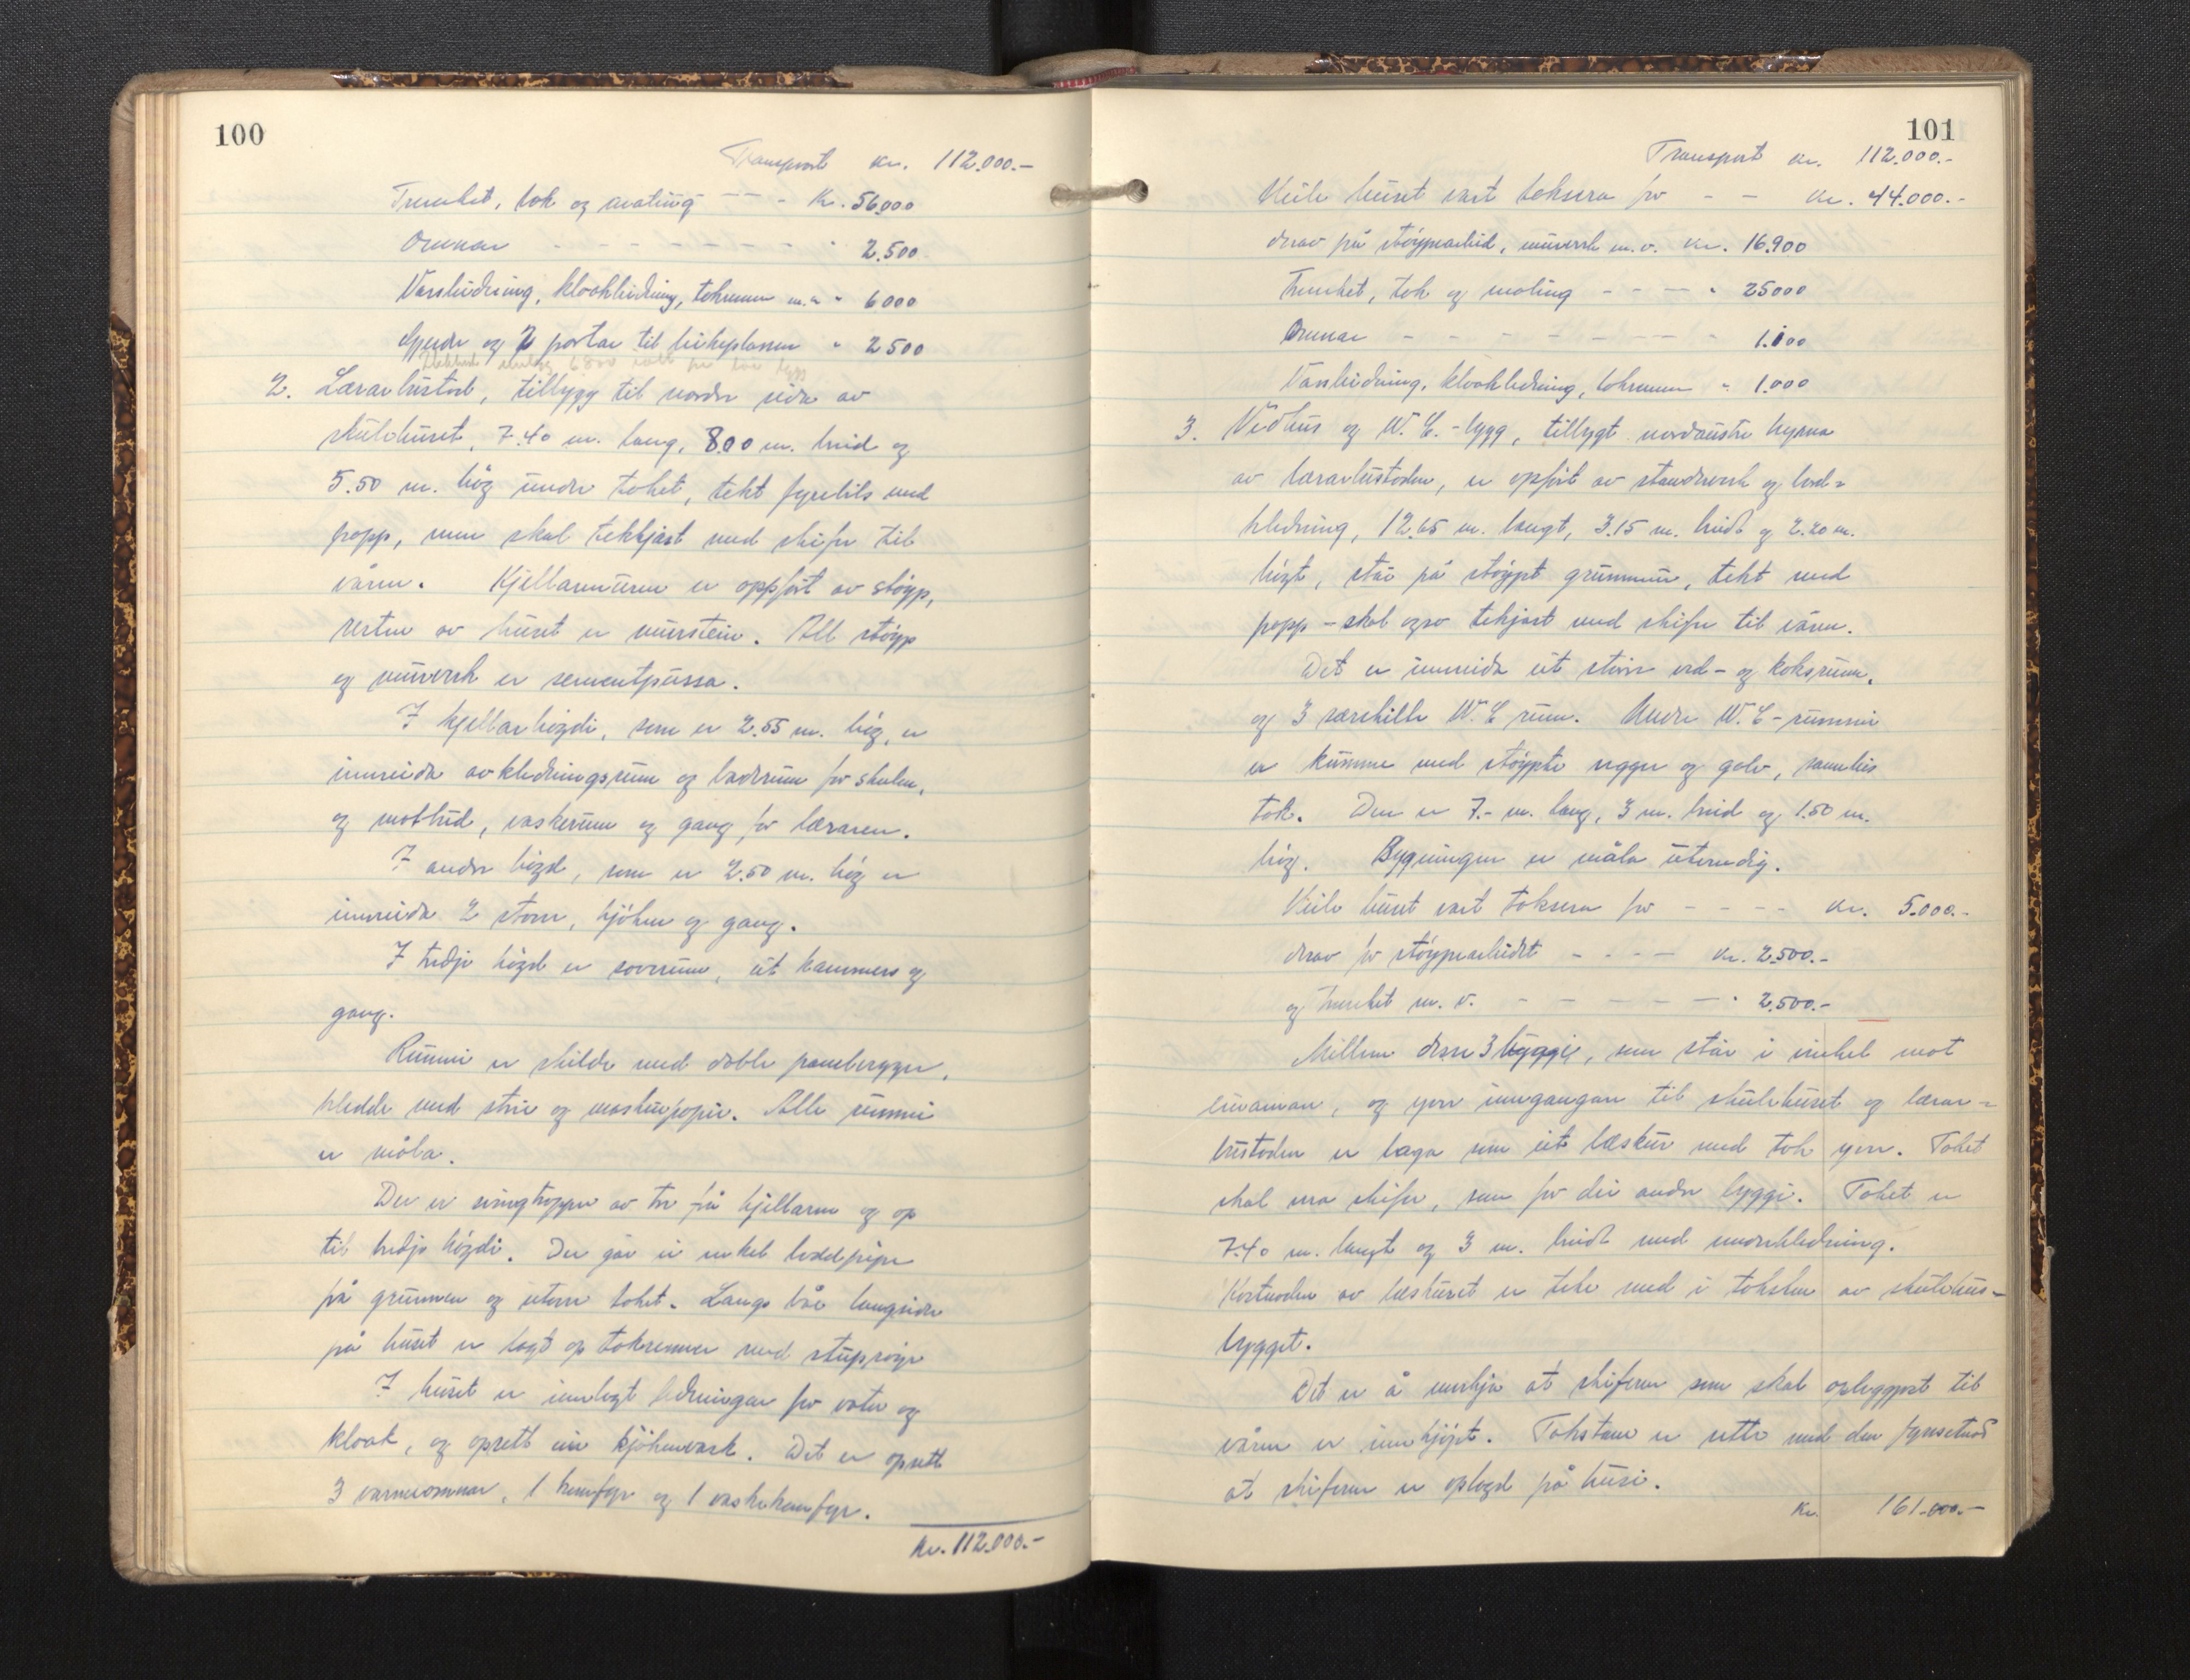 100
Transport kr. 112.000.-
Trearbet, tok og maling - - - Kr. 56000
Omnar - - - - - - - - " 2.500
Vassleidning, kloakleidning, tokrenner m.m. " 6000
Gjerde og 2 portar til leikeplassen " 2500
2. Lærarbustad, tilbygg til nordre sida av
skulehuset, 7.40 m. lang, 8.00 m. breid og
5.50 m. høg under taket, tekt fyrebils med
papp, men skal tekkjast med skifer til
våren. Kjellarmuren er oppført av støyp,
resten av huset er murstein. All støyp
og murverk er sementpussa.
I kjellarhøgdi, som er 2.55 m. høg, er
innreida avkledningsrum og badrum for skulen,
og matbud, vaskerum og gang for læraren.
I andre høgd, som er 2.50 m. høg er
innreida 2 stover, kjøken og gang.
I tridje høgd er soverum, eit kammers og
gang.
Rummi er skilde med doble panelvegger,
kledde med strie og maskinpapir. Alle rummi
er måla.
Der er svingtropper av tre frå kjellaren og op
til tridje høgdi. Der går ei enkel loddpipe
på grunnen og utover taket. Langs båe langsider
på huset er lagt op takrenner med stuprøyr
I huset er innlagt ledningar for vatn og
kloak, og oprett ein kjøkenvask. Det er oprett
3 varmeomnar, 1 komfyr og 1 vaskekomfyr.
Kr. 112.000.-
101
Transport kr. 112.000.-
Heile huset vart taksera for - - kr. 44.000.-
derav på støyparbeid, murverk m.v. kr. 16.900
Trearbet, tak og maling - - - - " 25000
Omnar - - - - - - - - - " 1.100
Vassleidning, kloakledning, takrenner " 1.000
3. Vedhus og W.C.-bygg, tilbygt nordaustre hyrna
av lærarbustaden, er opført av stenderverk og bord=
kledning, 12.65 m. langt, 3.15 m. breidt og 2.20 m.
høgt, står på støypt grunnmur, tekt med
papp - skal ogso tekjast med skifer til våren.
Det er innreida eit større ved- og koksrum,
og 3 særskilte W.C rum. Under W.C-rummi
er kumme med støypte vegger og golv, samleis
tak. Den er 7.- m. lang, 3 m. breid og 1.50 m.
høg. Bygningen er måla utvendig.
Heile huset vart taksera for - - - - kr. 5.000.-
derav for støyparbeidet - - - - kr. 2.500.-
og trearbet m.v. - - - - - - " 2.500.-
Millom desse 3 byggje, som står i vinkel mot
einannan, og yver inngangan til skulehuset og lærar=
bustaden er laga som eit læskur med tak yver. Taket
skal vera skifer, som for dei andre byggje. Taket er
7.40 m. langt og 3 m. breidt med underkledning.
Kostnaden av læskuret er teke med i taksten av skulehus-
bygget.
Det er å merkja at skiferen som skal opleggjast til
våren er innkjøpt. Takstane er sette med den fyresetnad
at skiferen er oplagd på husi.
Kr. 161.000.-